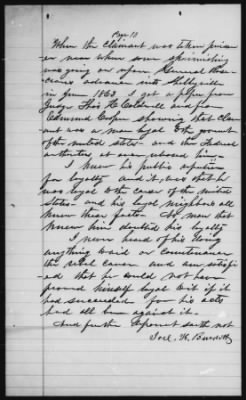 Page 10
When the claimant was taken prison-
er was when some skirmishing
was going on upon General Rose-
crans advance into Shelbyville
in June 1863. I got a paper from
Judge Thos H. Coldwell and from
Edmund Cooper showing that claim-
ant was a man loyal to the governmt
of the united states and the Federal
authorities at once released him
I knew his public reputation
for loyalty and it was that he
was loyal to the cause of the united
States and his loyal neighbors all
knew these facts. No man that
knew him doubted his loyalty
I never heard of his doing
anything to aid or countenance
the rebel cause and am satisfi-
ed that he could not have
proved himself loyal to it if it
had succeeded for his acts
had all been against it.
And further deponent saith not
Joel